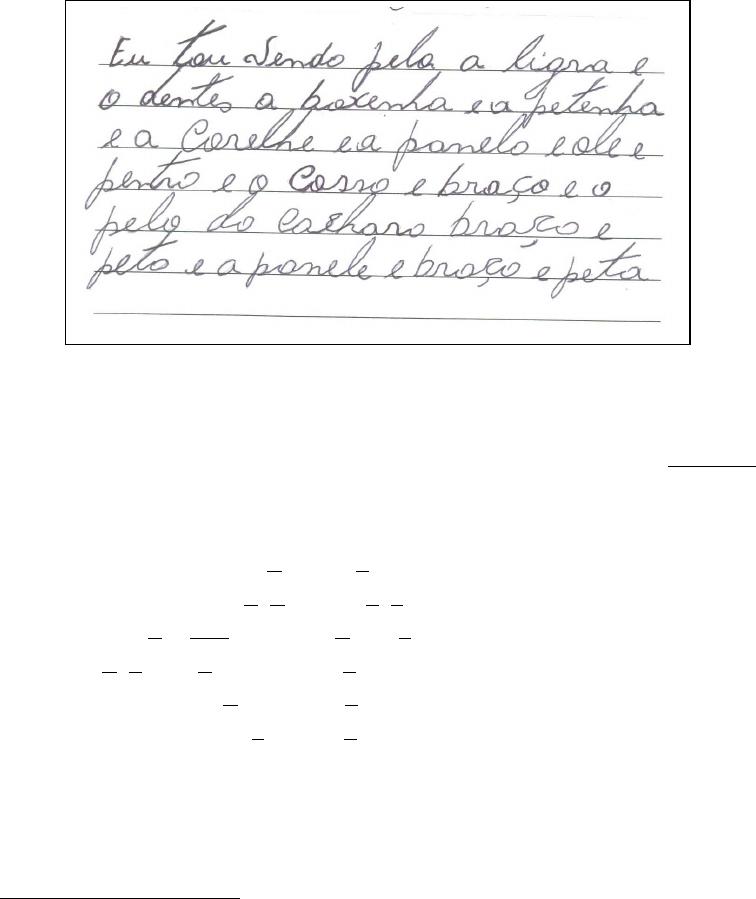 Eu tou vendo pela a ligra e
o dentes a boxenha e a petenha
e a Corelhe e a panela e ole e
pentro e o Corro e braço e o
pelo do cacharo braço e
peto e a panele e braço e peta